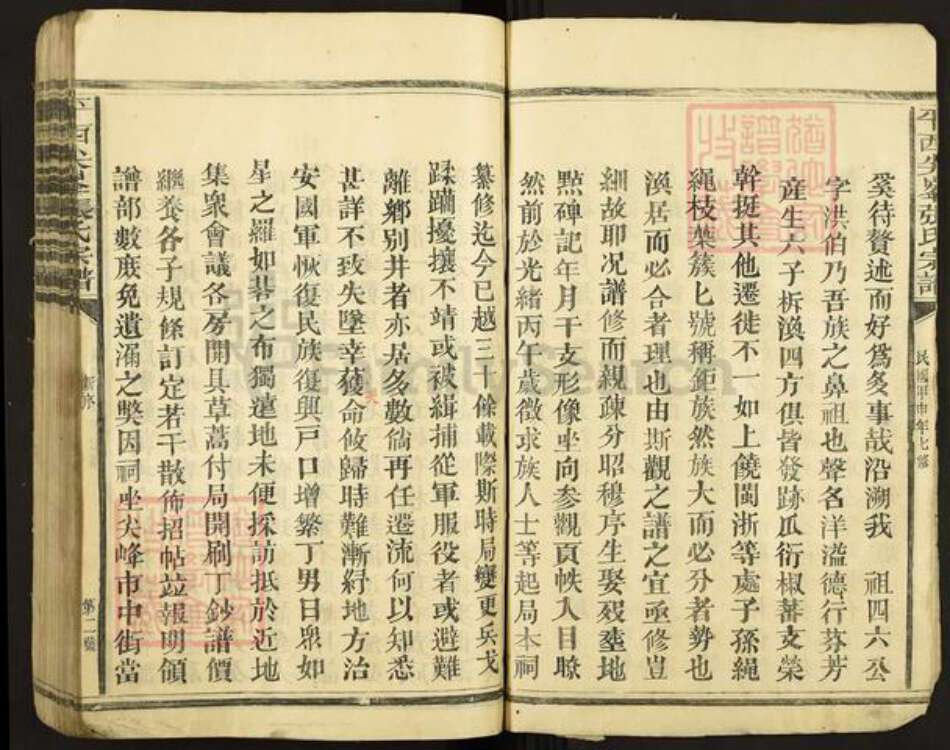 平西尖峯張氏宗譜
民國甲申年七修
奚待贅述而好爲多事哉沿溯我 祖四六公
字洪伯乃吾族之鼻祖也聲名洋溢德行芬芳
產生六子析渙四方俱皆發跡瓜衍椒蕃支榮
幹挺其他遷徙不一如上饒閩浙等處子孫繩
繩枝葉簇匕號稱鉅族然族大而必分者勢也
渙居而必合者理也由斯觀之譜之宜亟修豈
細故耶况譜修而親疎分昭穆序生娶歿塟地
㸃碑記年月干支形像坐向参觀頁帙入目瞭
然前於光緒丙午歲徵求族人士等起局本祠
纂修迄今已越三十餘載際斯時局變更兵戈
蹂躪擾攘不靖或被緝捕從軍服役者或避難
離鄉別井者亦居多數倘再任遷流何以知悉
甚詳不致失墜幸獲命攸歸時難漸紓地方治
安國軍恢復民族復興戸口增繁丁男日衆如
星之羅如碁之布獨遠地未便採訪祇於近地
集衆會議各房開具草藁付局開刷丁鈔譜價
繼養各子規條訂定若干散佈招帖並報明領
譜部數庶免遺漏之獘因祠坐尖峰市中街當
平西尖峯張氏宗譜
新序
第二號